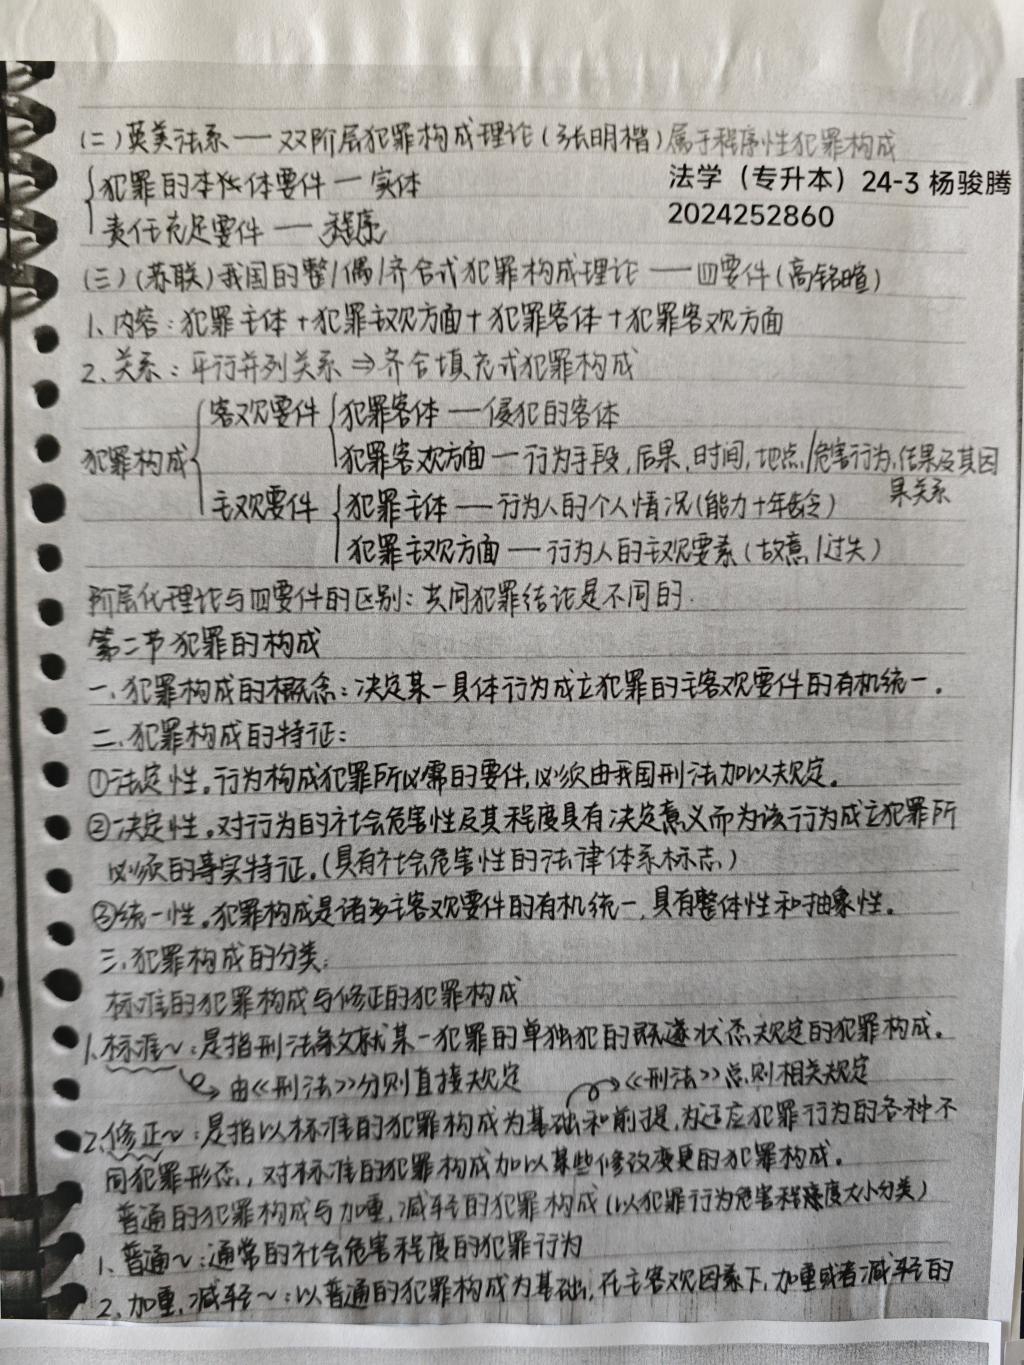 (二)英美法系——双阶层犯罪构成理论(张明楷)属于程序性犯罪构成
法学（专升本）24-3 杨骏腾
2024252860
犯罪的本体要件—实体
责任充足要件——程序
(三)(苏联)我国的整/偶/齐合式犯罪构成理论——四要件(高铭暄)
1、内容:犯罪主体+犯罪主观方面+犯罪客体+犯罪客观方面
2、关系:平行并列关系⇒齐合填充式犯罪构成
客观要件 犯罪客体—侵犯的客体
犯罪构成 犯罪客观方面—行为手段,后果,时间,地点/危害行为,结果及其因
果关系
主观要件 犯罪主体——行为人的个人情况(能力+年龄)
犯罪主观方面——行为人的主观要素(故意/过失)
阶层化理论与四要件的区别:共同犯罪结论是不同的.
第二节犯罪的构成
一、犯罪构成的概念:决定某一具体行为成立犯罪的主客观要件的有机统一.
二、犯罪构成的特征:
①法定性。行为构成犯罪所必需的要件,必须由我国刑法加以规定。
②决定性。对行为的社会危害性及其程度具有决定意义而为该行为成立犯罪所
必须的事实特征.(具有社会危害性的法律体系标志)
③统一性。犯罪构成是诸多主客观要件的有机统一,具有整体性和抽象性。
三、犯罪构成的分类:
标准的犯罪构成与修正的犯罪构成
1.标准~:是指刑法条文就某一犯罪的单独犯的既遂状态规定的犯罪构成.
由《刑法》分则直接规定 《刑法》总则相关规定
2.修正~:是指以标准的犯罪构成为基础和前提,为适应犯罪行为的各种不
同犯罪形态,对标准的犯罪构成加以某些修改变更的犯罪构成.
普通的犯罪构成与加重,减轻的犯罪构成(以犯罪行为危害程度大小分类)
1、普通~:通常的社会危害程度的犯罪行为
2、加重,减轻~:以普通的犯罪构成为基础,在主客观因素下,加重或者减轻的